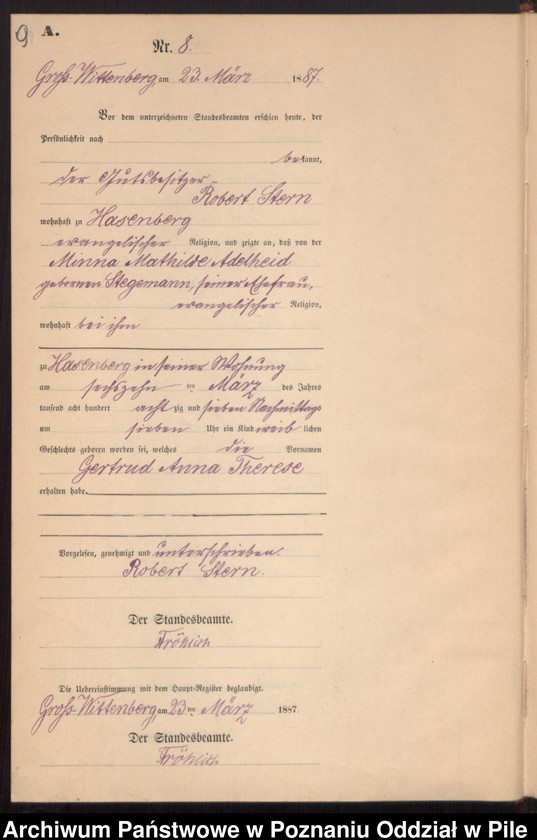 9 A.
Nr. 8.
Groß-Wittenberg am 23. März 1887.
Vor dem unterzeichneten Standesbeamten erschien heute, der
Persönlichkeit nach
bekannt,
der Gutsbesitzer
Robert Stern
wohnhaft zu Hasenberg
evangelischer Religion, und zeigte an, daß von der
Minna Mathilde Adelheid
gebornen Stegemann, seiner Ehefrau,
evangelischer Religion,
wohnhaft bei ihm
zu Hasenberg in seiner Wohnung
am sechszehn ten März des Jahres
tausend acht hundert acht zig und sieben Nachmittags
um sieben Uhr ein Kind weib lichen
Geschlechts geboren worden sei, welches die Vornamen
Gertrud Anna Therese
erhalten habe.
Vorgelesen, genehmigt und unterschrieben.
Robert Stern.
Der Standesbeamte.
Fröhlich
Die Uebereinstimmung mit dem Haupt-Register beglaubigt.
Groß-Wittenberg am 23 ten März 1887
Der Standesbeamte.
Fröhlich
Archiwum Państwowe w Poznaniu Oddział w Pile